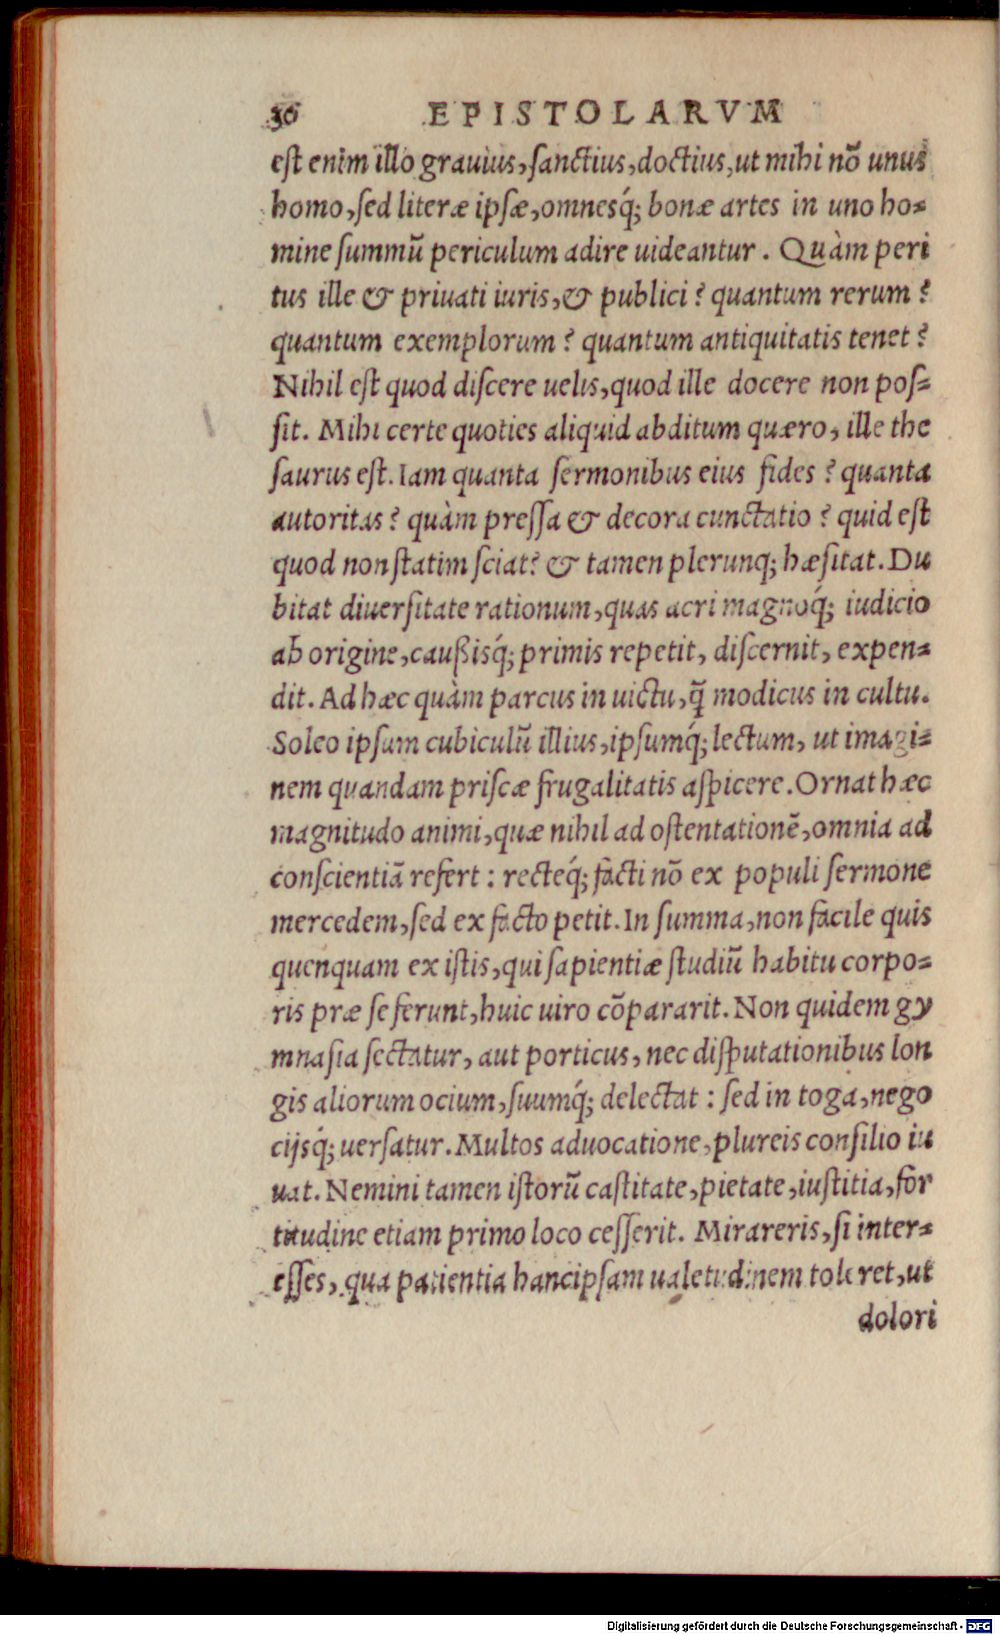 36 EPISTOLARVM
est enim illo grauius, sanctius, doctius, ut mihi nõ unus
homo, sed literæ ipsæ, omnesq́; bonæ artes in uno ho=
mine summũ periculum adire uideantur. Quàm peri
tus ille & priuati iuris, & publici? quantum rerum?
quantum exemplorum? quantum antiquitatis tenet?
Nihil est quod discere uelis, quod ille docere non pos=
sit. Mihi certe quoties aliquid abditum quæro, ille the
saurus est. Iam quanta sermonibus eius fides? quanta
autoritas? quàm pressa & decora cunctatio? quid est
quod non statim sciat? & tamen plerunq; hæsitat. Du
bitat diuersitate rationum, quas acri magnoq́; iudicio
ab origine, caußisq́; primis repetit, discernit, expen=
dit. Ad hæc quàm parcus in uictu, q̃ modicus in cultu.
Soleo ipsum cubiculũ illius, ipsumq́; lectum, ut imagi=
nem quandam priscæ frugalitatis aspicere. Ornat hæc
magnitudo animi, quæ nihil ad ostentationẽ, omnia ad
conscientiã refert: recteq́; facti nõ ex populi sermone
mercedem, sed ex facto petit. In summa, non facile quis
quenquam ex istis, qui sapientiæ studiũ habitu corpo=
ris præ se ferunt, huic uiro cõpararit. Non quidem gy
mnasia sectatur, aut porticus, nec disputationibus lon
gis aliorum ocium, suumq́; delectat: sed in toga, nego
cijsq́; uersatur. Multos aduocatione, plureis consilio iu
uat. Nemini tamen istorũ castitate, pietate, iustitia, for
titudine etiam primo loco cesserit. Mirareris, si inter=
esses, qua patientia hanc ipsam ualetudinem toleret, ut
dolori
Digitalisierung gefördert durch die Deutsche Forschungsgemeinschaft - DFG